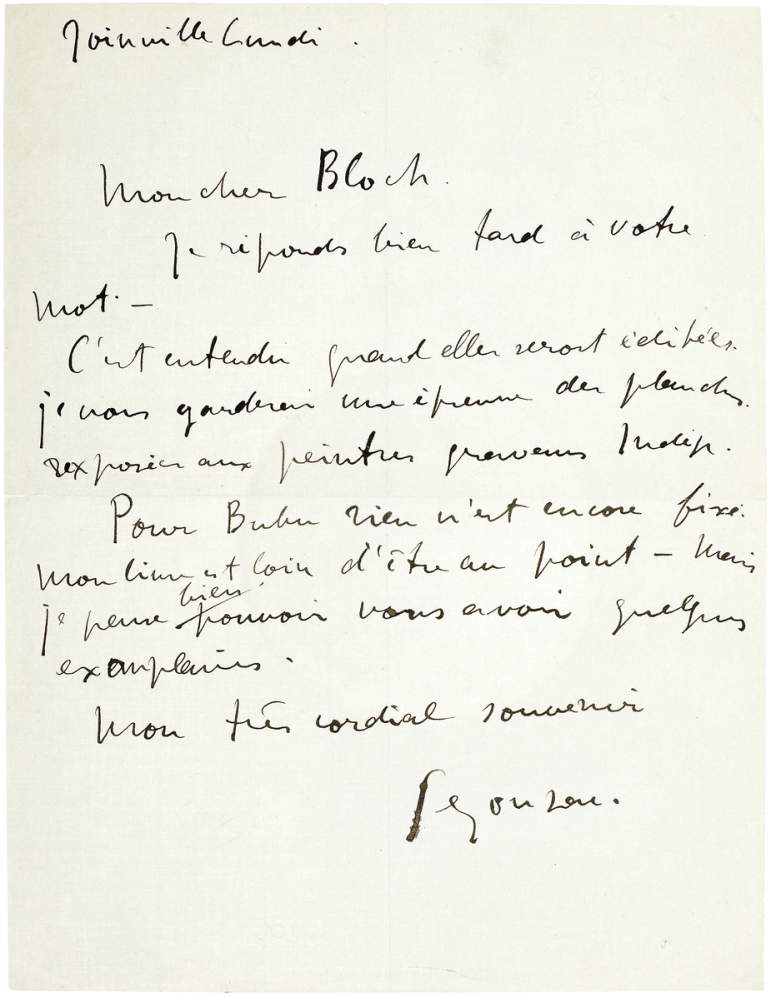 Joinville Lundi.
Mon cher Bloch.
Je réponds bien tard à votre
mot. —
C'est entendu quand elles seront éditées.
je vous garderai une épreuve des planches.
exposées aux peintres graveurs Indép.
Pour Bubu rien n'est encore fixé.
Mon livre est loin d'être au point — Mais
bien
je pense pouvoir vous avoir quelques
exemplaires.
Mon très cordial souvenir
Segonzac.